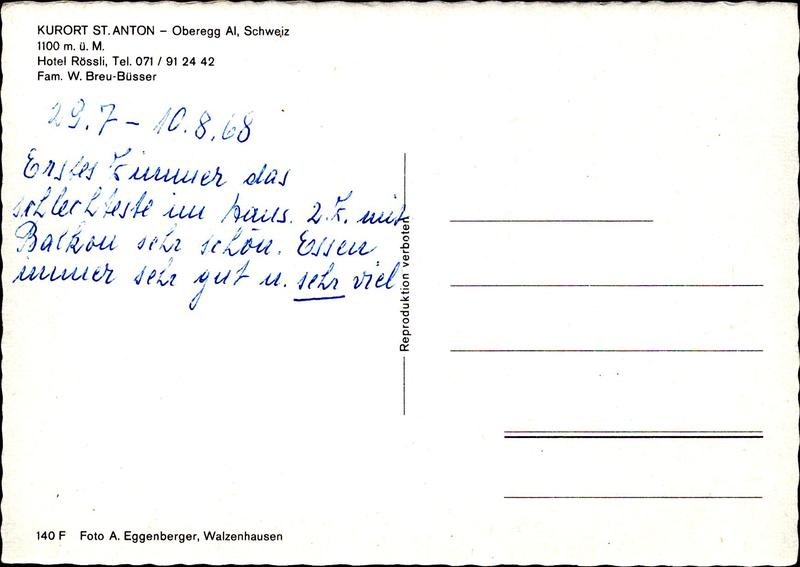 KURORT ST. ANTON – Oberegg AI, Schweiz
1100 m. ü. M.
Hotel Rössli, Tel. 071 / 91 24 42
Fam. W. Breu-Büsser
29.7 – 10.8.68
Erstes Zimmer das
schlechteste im Haus. 2. Z. mit
Balkon sehr schön. Essen
immer sehr gut u. sehr viel
Reproduktion verboten
140 F Foto A. Eggenberger, Walzenhausen